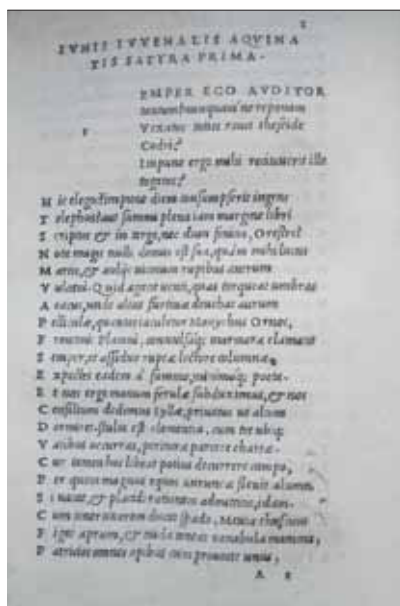 IVNII IVVENALIS AQVINA
TIS SATYRA PRIMA.
EMPER EGO AVDITOR
tantum? nunquam'ne reponam
Vexatus toties rauci theseide
Codri?
Impune ergo mihi recitauerit ille
togatas?
H ic elegos? impune diem consumpserit ingens
T elephus? aut summi plena iam margine libri
S criptus, & in tergo, nec dum finitus, Orestes?
N ota magis nulli domus est sua, quàm mihi lucus
M artis, & aeoliis uicinum rupibus antrum
V ulcani. Quid agant uenti, quas torqueat umbras
A eacus, unde alius furtiuae deuehat aurum
P elliculae, quantas iaculetur Monychus Ornos,
F rontonis Platani, conuulsaq; marmora clamant
S emper, et assiduo ruptae lectore columnae.
E xpectes eadem à summo, minimoq; poeta.
E t nos ergo manum ferulae subduximus, & nos
C onsilium dedimus Syllae, priuatus ut altum
D ormiret. stulta est clementia, cum tot ubiq;
V atibus occurras, periturae parcere chartae.
C ur tamen hoc libeat potius decurrere campo,
P er quem magnus equos auruncae flexit alumnus,
S i uacat, & placidi rationem admittitis, edam.
C um tener uxorem ducat spado, Meuia thuscum
F igat aprum, & nuda teneat uenabula mamma,
P atricios omnes opibus cum prouocet unus,